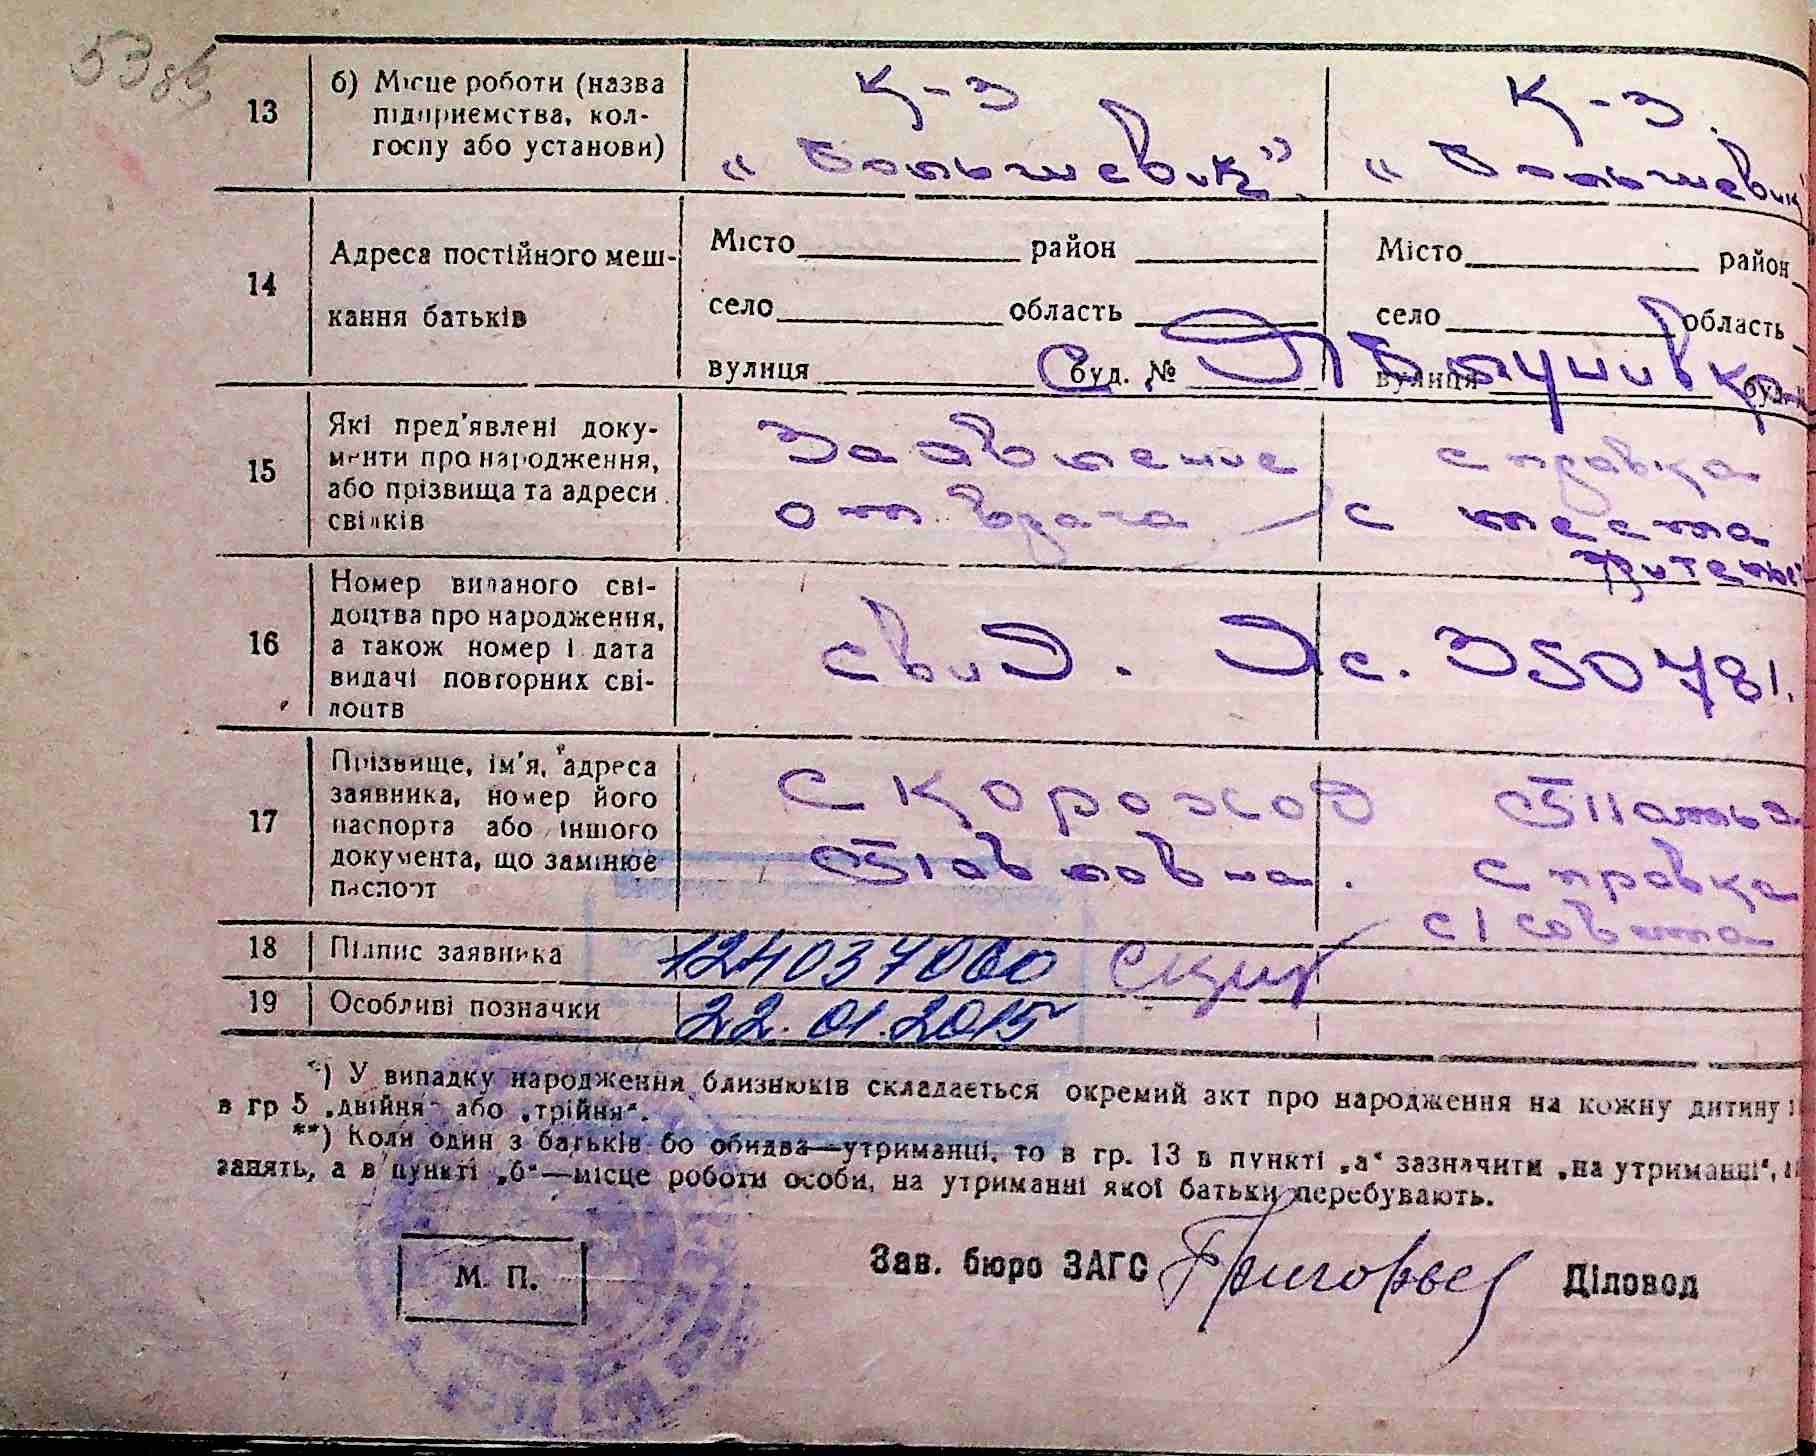 13
б) Місце роботи (назва
підприємства, кол-
госпу або установи)
К-з
„Большевик”
К-з.
„Большевик
14
Адреса постійного меш-
кання батьків
Місто район
село область
вулиця буд. №
Місто район
село область
вулиця буд.
С.
15
Які пред'явлені доку-
менти про народження,
або прізвища та адреси
свідків
Заявление
от врача
справка
с места
жител
16
Номер виданого сві-
доцтва про народження,
а також номер і дата
видачі повторних сві-
доцтв
свид. Эс. 350781.
17
Прізвище, ім'я, адреса
заявника, номер його
паспорта або іншого
документа, що замінює
паспорт
Скороход
Павловна.
справка
с/совета
18
Підпис заявника
124037060
19
Особливі позначки
22.01.2015
*) У випадку народження близнюків складається окремий акт про народження на кожну дитину
в гр 5 „двійня“ або „трійня“.
**) Коли один з батьків бо обидва—утриманці, то в гр. 13 в пункті „а“ зазначити „на утриманні“,
занять, а в пункті „б“—місце роботи особи, на утриманні якої батьки перебувають.
М. П.
Зав. бюро ЗАГС Діловод